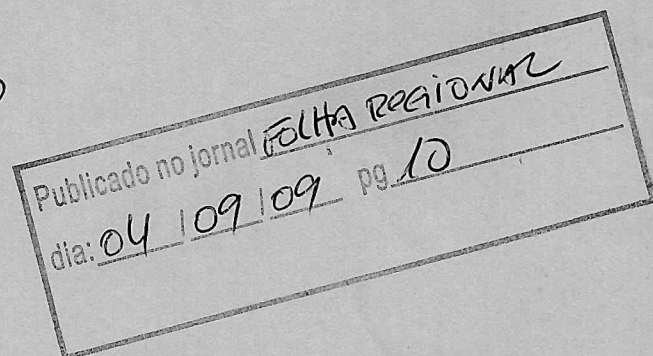 Publicado no jornal FOLHA REGIONAL
dia: 04 / 09 / 09 pg 10